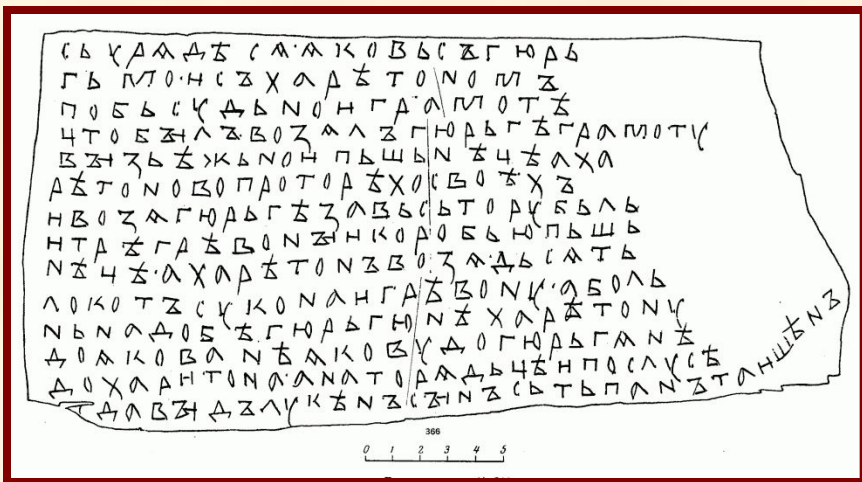 СЬУРѦДѢСѦ·ѦКОВЬСЪГЮРЬ
ГЬМО·ИСЪХАРѢТОНОМЪ
ПОБЬСУДЬНОИГРАМОТѢ
ЦТОБЪІЛЪ·ВОЗѦЛЪГЮРЬГѢГРАМОТУ
ВЪІЗЬѢЖЬНОИПЬШЬНѢЦѢАХА
РѢТОНОВОПРОТОРѢХОСВОѢХЪ
ИВОЗѦГЮРЬГѢЗАВЬСЬТОРУБЬЛЬ
ИТРѢГРѢВОНЪІИКОРОБЬЮПЬШЬ
НѢЦѢ·АХАРѢТОНЪВОЗѦ·ДЬСѦТЬ
ЛОКОТЪСУКОНАИГРѢВОНУ·АБОЛЬ
НЬНАДОБѢГЮРЬГЮНѢХАРѢТОНУ
ДОѦКОВАНѢѦКОВУДОГЮРЬГѦНѢ
ДОХАРИТОНА·АНАТОРѦДЬЦѢИПОСЛУСѢ
ДАВЪІДЪЛУКѢНЪСЪІНЪСЬТЬПАНЪТАИШѢНЪ
366
0 1 2 3 4 5